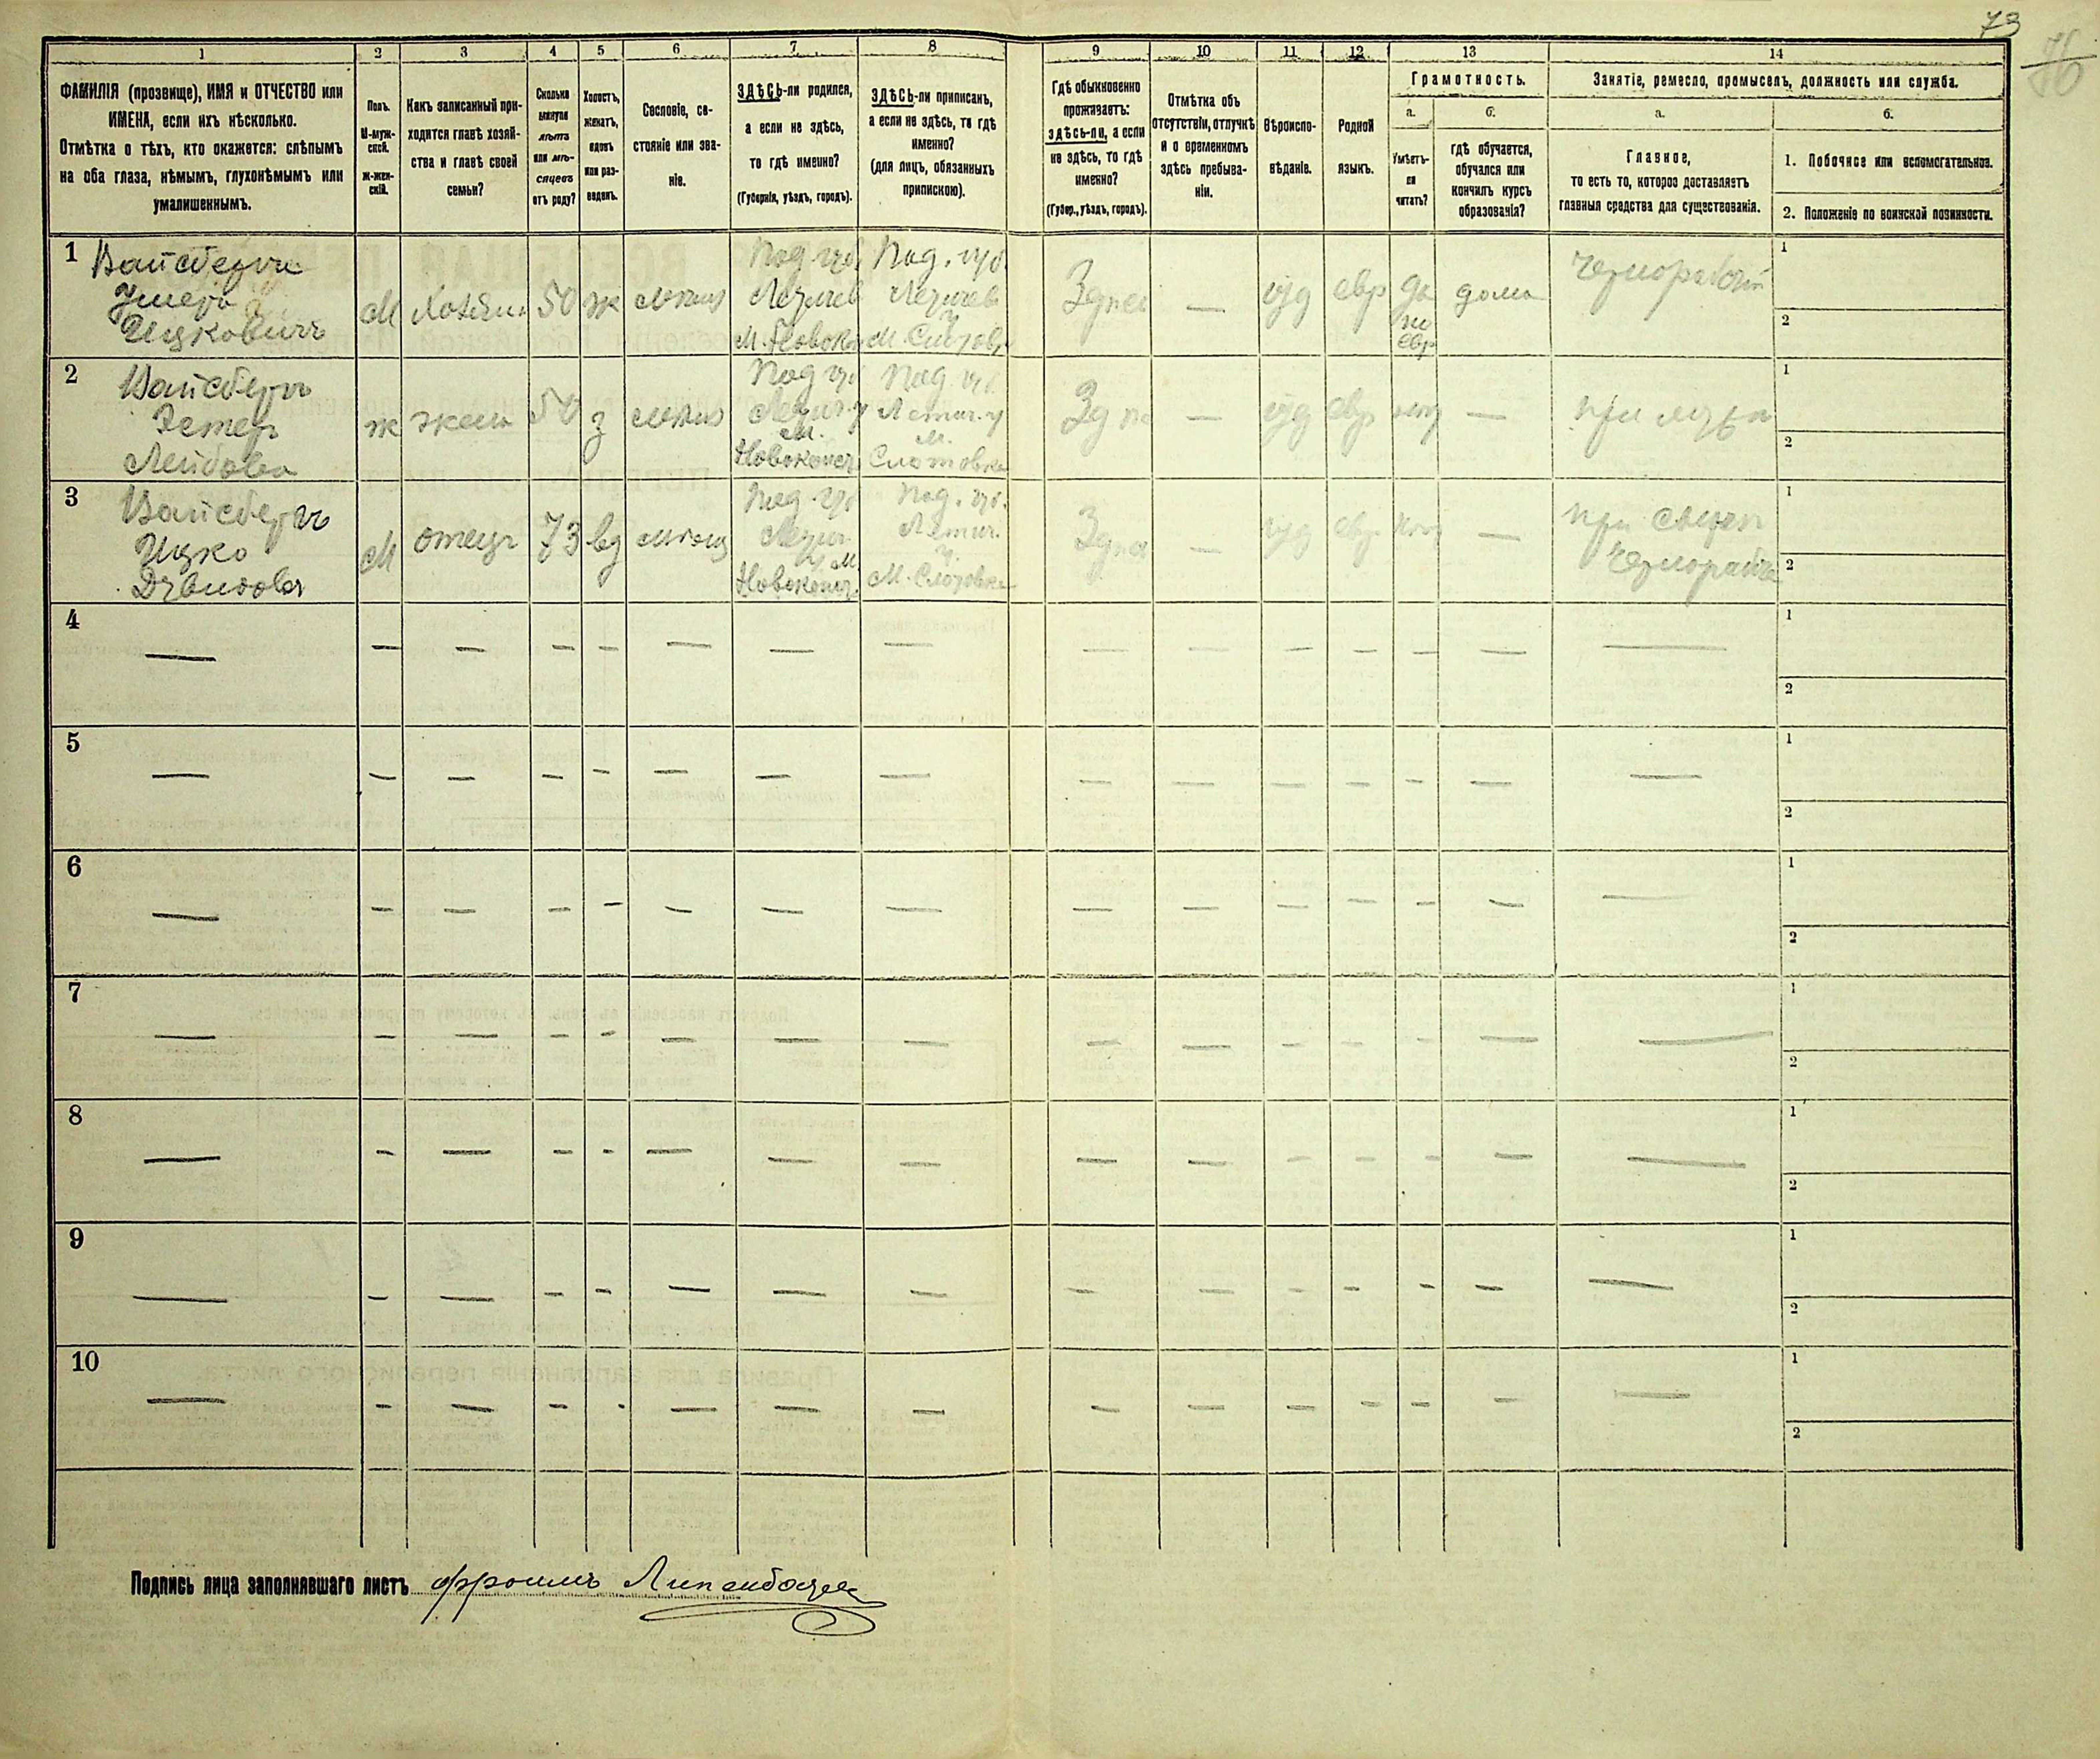 73
76
1 2 3 4 5 6 7 8 9 10 11 12 13 14
ФАМИЛІЯ (прозвище), ИМЯ и ОТЧЕСТВО или
ИМЕНА, если ихъ нѣсколько.
Отмѣтка о тѣхъ, кто окажется: слѣпымъ
на оба глаза, нѣмымъ, глухонѣмымъ или
умалишеннымъ.
Полъ.
М-муж-
ской.
Ж-жен-
скій.
Какъ записанный при-
ходится главѣ хозяй-
ства и главѣ своей
семьи?
Сколько
минуло
лѣтъ
или мѣ-
сяцевъ
отъ роду?
Холостъ,
женатъ,
вдовъ
или раз-
веденъ.
Сословіе, со-
стояніе или зва-
ніе.
ЗДѢСЬ-ли родился,
а если не здѣсь,
то гдѣ именно?
(Губернія, уѣздъ, городъ).
ЗДѢСЬ-ли приписанъ,
а если не здѣсь, то гдѣ
именно?
(для лицъ, обязанныхъ
припискою).
Гдѣ обыкновенно
проживаетъ:
здѣсь-ли, а если
не здѣсь, то гдѣ
именно?
(Губер., уѣздъ, городъ).
Отмѣтка объ
отсутствіи, отлучкѣ
и о временномъ
здѣсь пребыва-
ніи.
Вѣроиспо-
вѣданіе.
Родной
языкъ.
Грамотность.
а. б.
Умѣетъ-
ли
читать?
гдѣ обучается,
обучался или
кончилъ курсъ
образованія?
Занятіе, ремесло, промыселъ, должность или служба.
а. б.
Главное,
то есть то, которое доставляетъ
главныя средства для существованія.
1. Побочное или вспомогательное.
2. Положеніе по воинской повинности.
1
Вайсбергъ
Ицковичъ
М Хозяин 50 ж
Под. губ.
Летичев
Под. губ.
Летичев
М.
Здѣсь — іуд евр да
по
евр
дома
Чернорабочій
1
2
2
Вайсбергъ
Эстер
Лейбова
ж жена 50 з
Под губ
Летич. у
М.
Новоконст.
Под. губ.
Летич. у
М.
Слотовка
Здѣсь — іуд евр нѣт —
при мужѣ
1
2
3
Вайсбергъ
Ицко
Давидовъ
М отецъ 73 вд
Под. губ
Летич.
у. М.
Новоконст.
Под. губ.
Летич.
у.
М. Слотовка
Здѣсь — іуд евр нѣт —
при сынѣ
Чернорабоч
1
2
4
— — — — — — — — — — — — — — —
1
2
5
— — — — — — — — — — — — — — —
1
2
6
— — — — — — — — — — — — — — —
1
2
7
— — — — — — — — — — — — — — —
1
2
8
— — — — — — — — — — — — — — —
1
2
9
— — — — — — — — — — — — — — —
1
2
10
— — — — — — — — — — — — — — —
1
2
Подпись лица заполнявшаго листъ Фроимъ